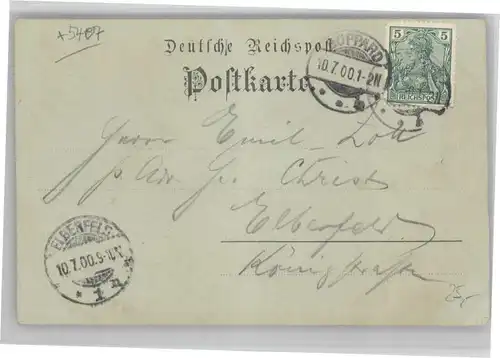 *5407
Deutsche Reichspost
Postkarte
BOPPARD
10.7.00.1-2N
* * 1
5 5
REICHSPOST
Herrn Emil Dott
p Adr. Hr. Christ
Elberfeld
Königstrasse
ELBERFELD
10.7.00.9-10N
* 1 n